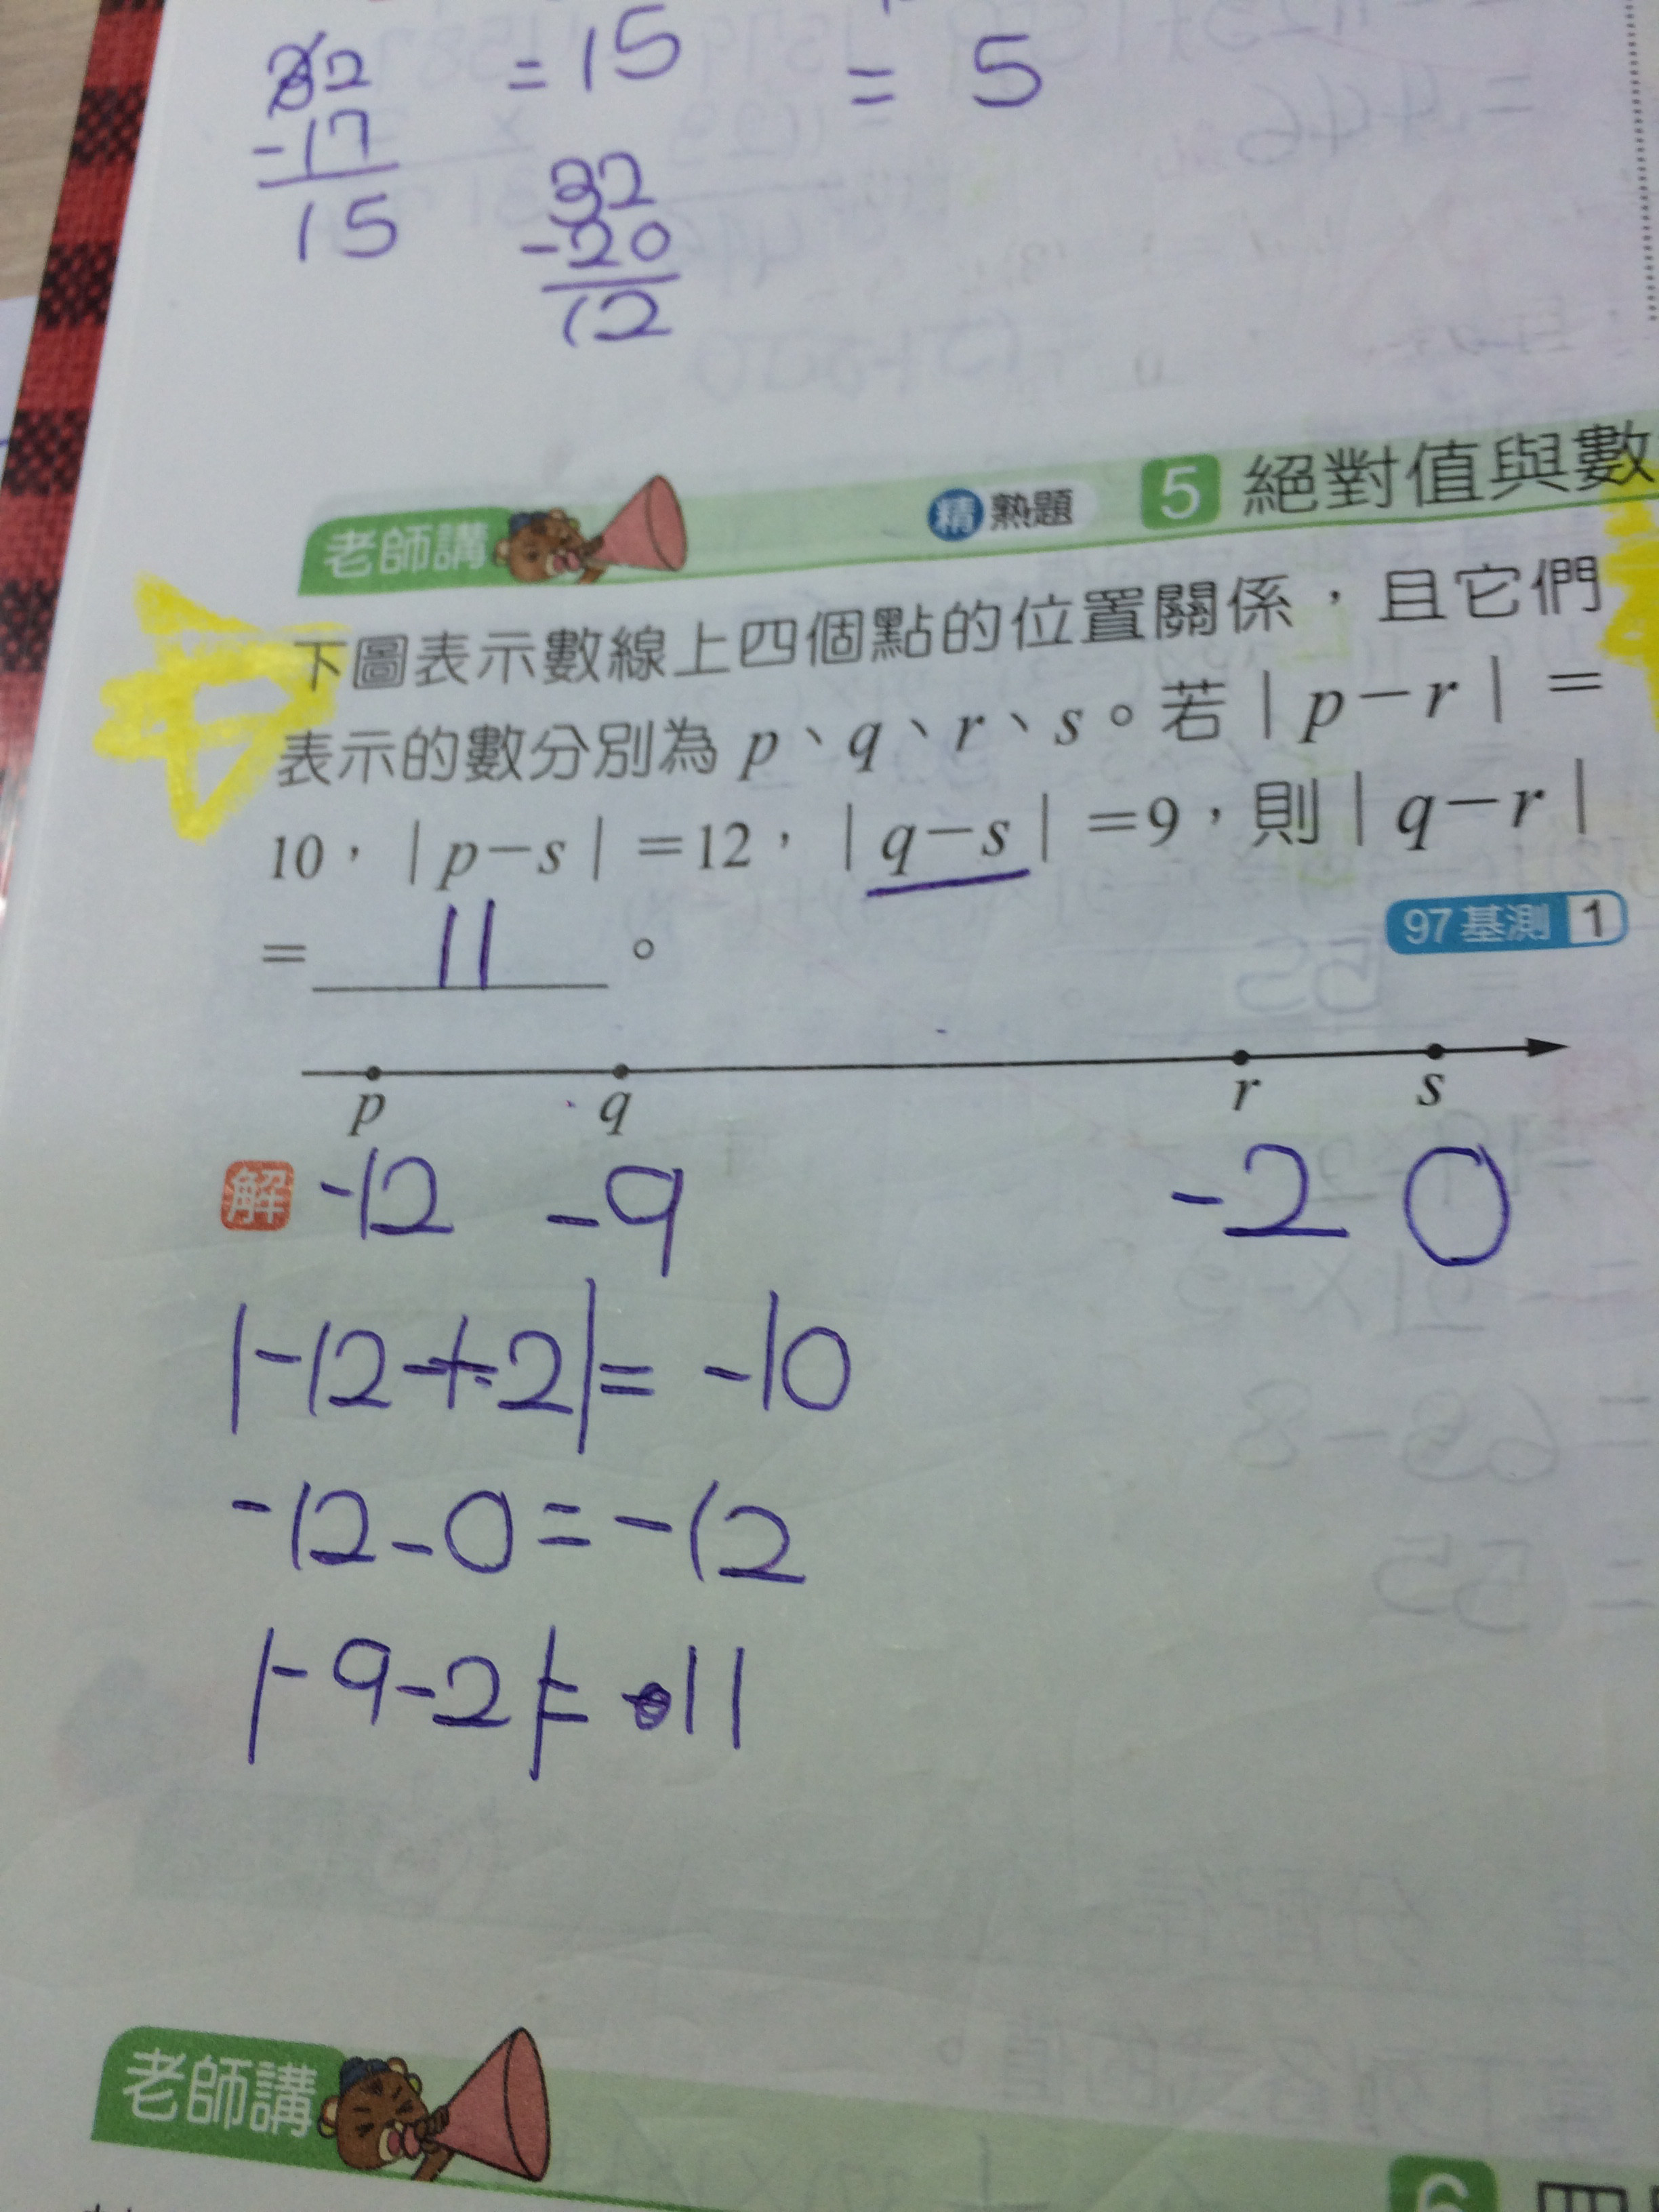 32
-17
15
= 15
32
-20
12
= 5
老師講 精 熟題 5 絕對值與數
下圖表示數線上四個點的位置關係，且它們
表示的數分別為 p、q、r、s。若｜p－r｜＝
10，｜p－s｜＝12，｜q－s｜＝9，則｜q－r｜
＝ 11 。
97基測 1
p q r s
解 -12 -9 -2 0
|-12+2|= -10
-12-0=-12
|-9-2|= 11
老師講
6